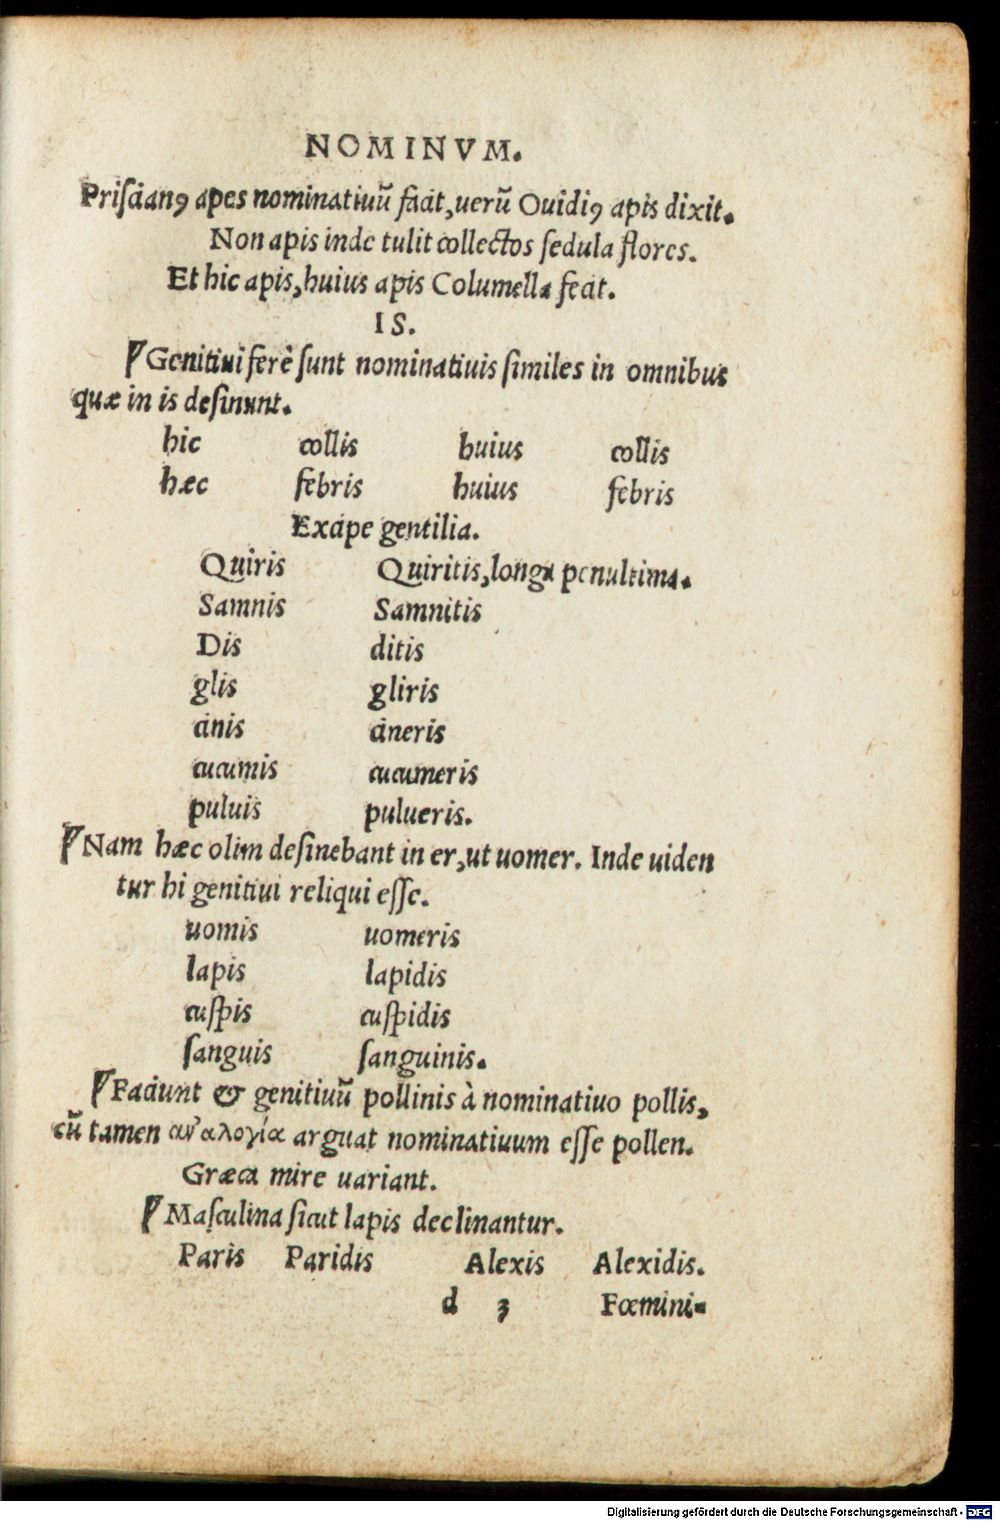 NOMINVM.
Priſcianꝯ apes nominatiuū facit, uerū Ouidiꝯ apis dixit.
Non apis inde tulit collectos ſedula flores.
Et hic apis, huius apis Columella fecit.
IS.
Genitiui ferè ſunt nominatiuis ſimiles in omnibus
quæ in is deſinunt.
hic collis huius collis
hæc febris huius febris
Excipe gentilia.
Quiris Quiritis, longa penultima.
Samnis Samnitis
Dis ditis
glis gliris
cinis cineris
cucumis cucumeris
puluis pulueris.
Nam hæc olim deſinebant in er, ut uomer. Inde uiden
tur hi genitiui reliqui eſſe.
uomis uomeris
lapis lapidis
cuſpis cuſpidis
ſanguis ſanguinis.
Faciunt & genitiuū pollinis à nominatiuo pollis,
cū tamen ἀναλογία arguat nominatiuum eſſe pollen.
Græca mire uariant.
Maſculina ſicut lapis declinantur.
Paris Paridis Alexis Alexidis.
d 3 Fœmini-
Digitalisierung gefördert durch die Deutsche Forschungsgemeinschaft - DFG